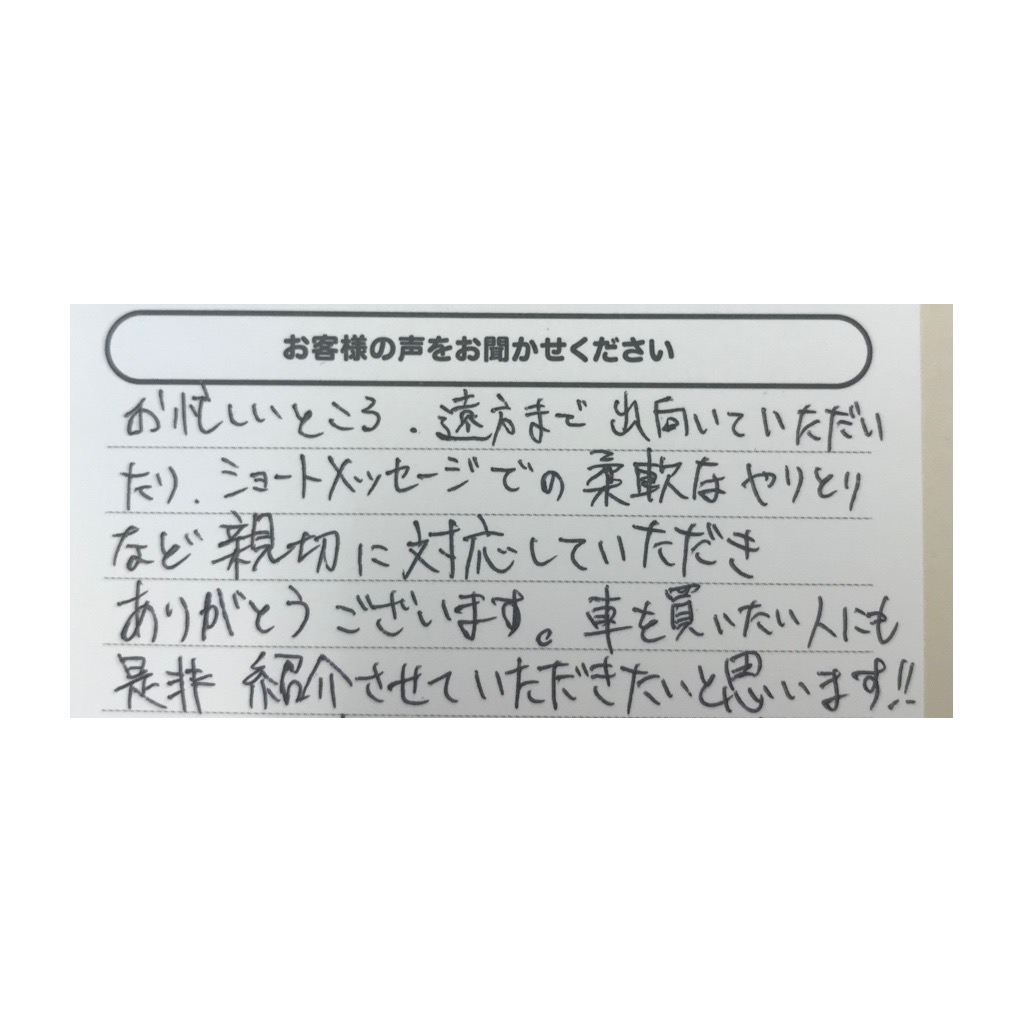 お客様の声をお聞かせください
お忙しいところ、遠方まで出向いていただい
たり、ショートメッセージでの柔軟なやりとり
など親切に対応していただき
ありがとうございます。車を買いたい人にも
是非紹介させていただきたいと思います!!